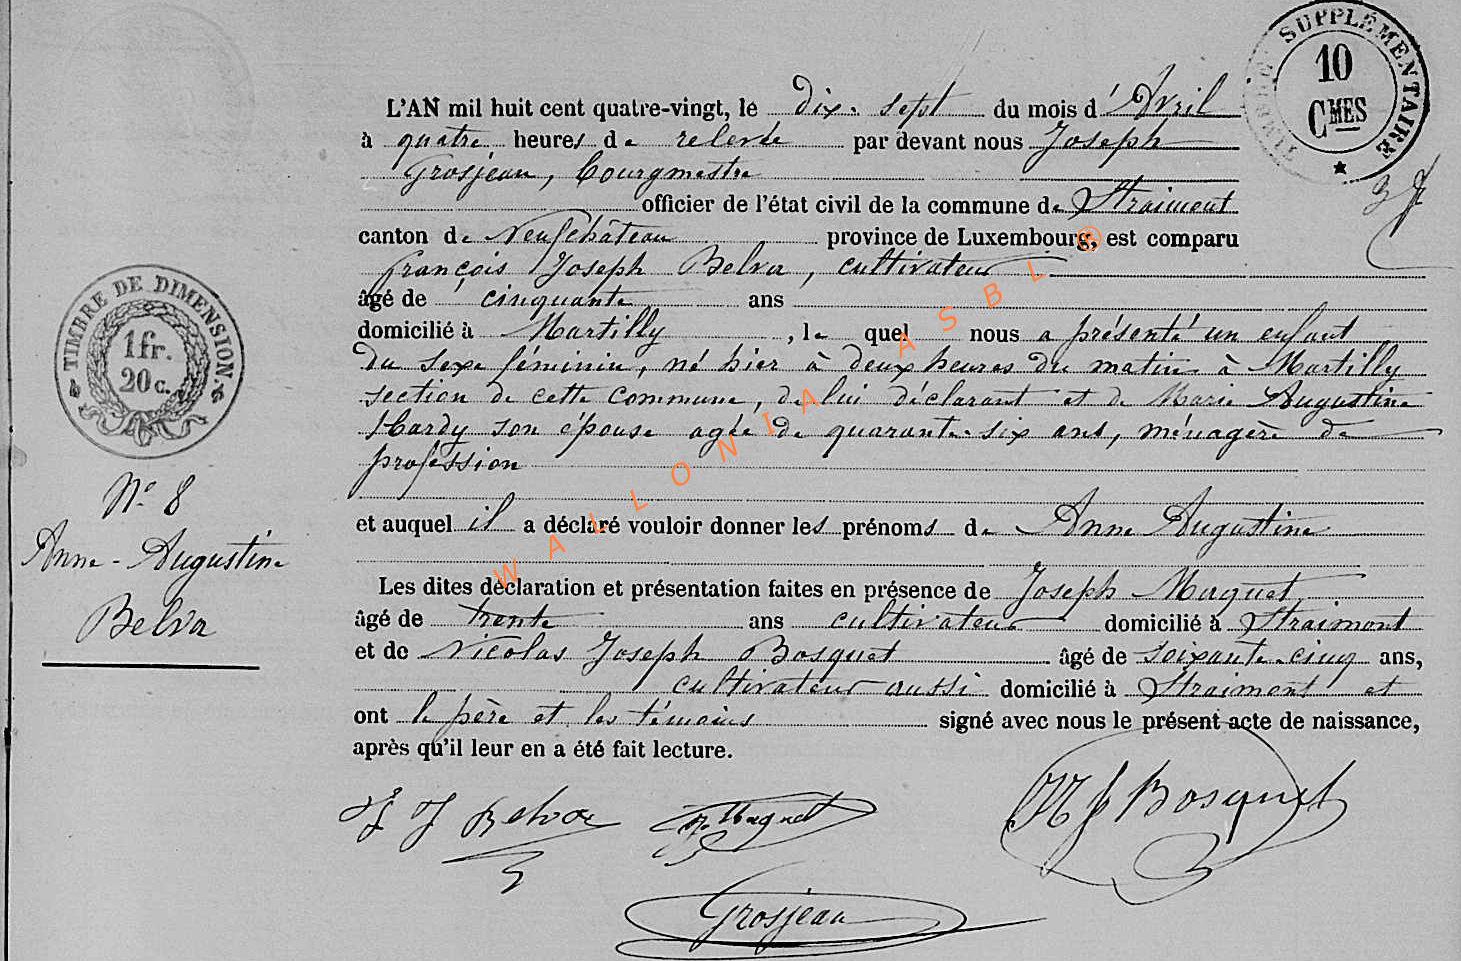 TIMBRE SUPPLÉMENTAIRE
10
CMES
L'AN mil huit cent quatre-vingt, le dix-sept du mois d'Avril
à quatre heures de relevée par devant nous Joseph
Grosjean, Bourgmestre
officier de l'état civil de la commune de Straimont
canton de Neufchâteau province de Luxembourg, est comparu
François Joseph Belva, cultivateur
âgé de cinquante ans
domicilié à Martilly, le quel nous a présenté un enfant
du sexe féminin, né hier à deux heures du matin à Martilly
section de cette commune, de lui déclarant et de Marie Augustine
Hardy son épouse agée de quarante-six ans, ménagère de
profession
et auquel il a déclaré vouloir donner les prénoms de Anne Augustine
Les dites déclaration et présentation faites en présence de Joseph Maquet
âgé de trente ans cultivateur domicilié à Straimont
et de Nicolas Joseph Bosquet âgé de soixante-cinq ans,
cultivateur aussi domicilié à Straimont et
ont le père et les témoins signé avec nous le présent acte de naissance,
après qu'il leur en a été fait lecture.
F J Belva
J. Maquet
N J Bosquet
Grosjean
TIMBRE DE DIMENSION
1 fr.
20 c.
N° 8
Anne-Augustine
Belva
WALLONIA ASBL ®